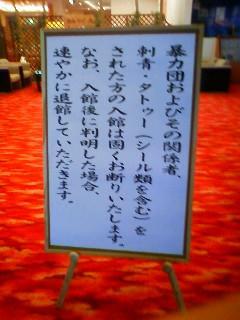 暴力団およびその関係者、
刺青・タトゥー(シール類を含む)を
された方の入館は固くお断りいたします。
なお、入館後に判明した場合、
速やかに退館していただきます。